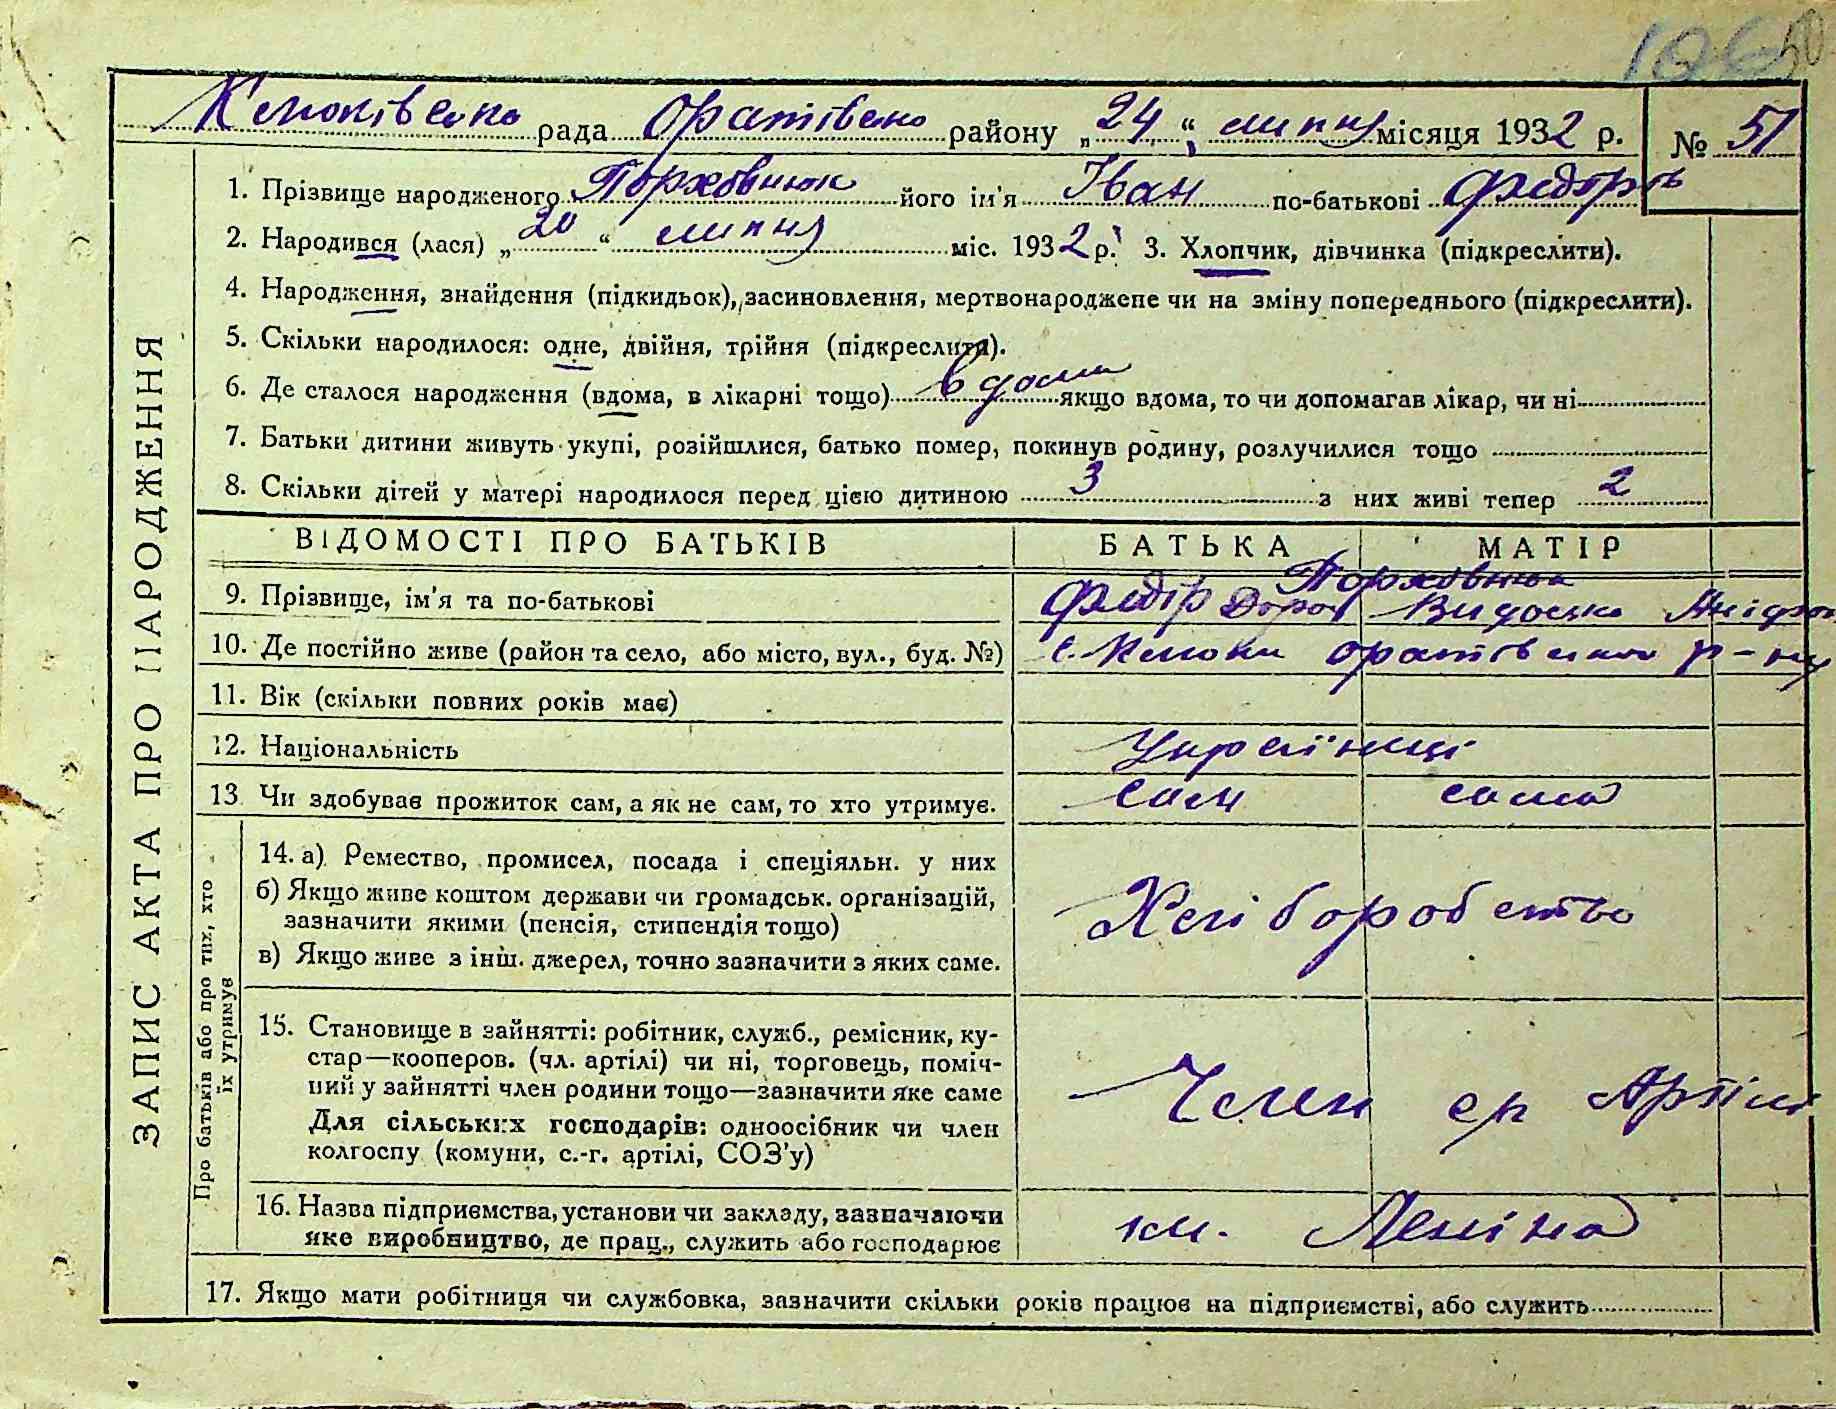 рада Оратівсько району „24“ липня місяця 1932 р. № 51
1. Прізвище народженого Порховнюк його ім'я Іван по-батькові Федорів
2. Народився (лася) „20“ липня міс. 1932 р. 3. Хлопчик, дівчинка (підкреслити).
4. Народження, знайдення (підкидьок), засиновлення, мертвонароджене чи на зміну попереднього (підкреслити).
5. Скільки народилося: одне, двійня, трійня (підкреслити).
6. Де сталося народження (вдома, в лікарні тощо) вдома якщо вдома, то чи допомагав лікар, чи ні
7. Батьки дитини живуть укупі, розійшлися, батько помер, покинув родину, розлучилися тощо
8. Скільки дітей у матері народилося перед цією дитиною 3 з них живі тепер 2
ЗАПИС АКТА ПРО НАРОДЖЕННЯ
ВІДОМОСТІ ПРО БАТЬКІВ БАТЬКА МАТІР
Порховнюк
9. Прізвище, ім'я та по-батькові Федір
10. Де постійно живе (район та село, або місто, вул., буд. №) с. Оратівсько р-ну
11. Вік (скільки повних років має)
12. Національність Українці
13 Чи здобуває прожиток сам, а як не сам, то хто утримує. сам сама
Про батьків або про тих, хто
їх утримує
14. а) Ремество, промисел, посада і спеціяльн. у них
б) Якщо живе коштом держави чи громадськ. організацій,
зазначити якими (пенсія, стипендія тощо)
в) Якщо живе з інш. джерел, точно зазначити з яких саме.
Хліборобство
15. Становище в зайнятті: робітник, служб., ремісник, ку-
стар—кооперов. (чл. артілі) чи ні, торговець, поміч-
ний у зайнятті член родини тощо—зазначити яке саме
Для сільських господарів: одноосібник чи член
колгоспу (комуни, с.-г. артілі, СОЗ'у)
Член Артілі
16. Назва підприємства, установи чи закладу, зазначаючи
яке виробництво, де прац., служить або господарює
ім. Леніна
17. Якщо мати робітниця чи службовка, зазначити скільки років працює на підприємстві, або служить